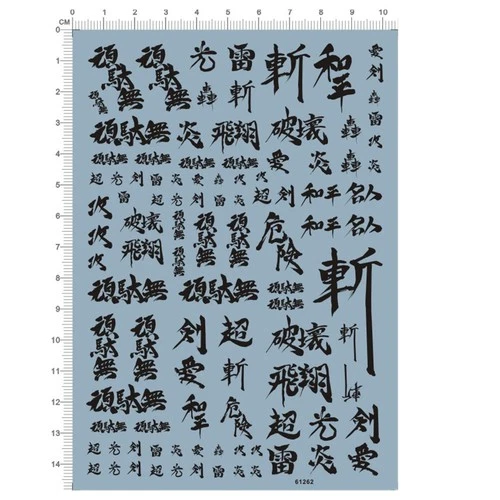 0 1 2 3 4 5 6 7 8 9 10
CM
0
1
2
3
4
5
6
7
8
9
10
11
12
13
14
頑駄無 頑駄無 光 雷 斬 和平 愛
剣
頑駄無 轟 斬 轟 雷
頑駄無 炎 飛翔 破壊 轟
頑駄無 頑駄無 頑駄無 頑駄無 愛 炎 轟
超 光 剣 雷 炎 超 剣 和平 名人
破壊 頑駄無 頑駄無 危険 和平 名人
飛翔 頑駄無 斬
頑駄無 頑駄無 頑駄無
頑駄無
頑駄無 頑駄無 剣 超 破壊 斬
愛 斬 飛翔
頑駄無 頑駄無 和平 危険 超 光 剣
頑駄無 頑駄無 雷 炎 愛
超 光 剣 雷 炎
超 光 剣 雷 炎
61262